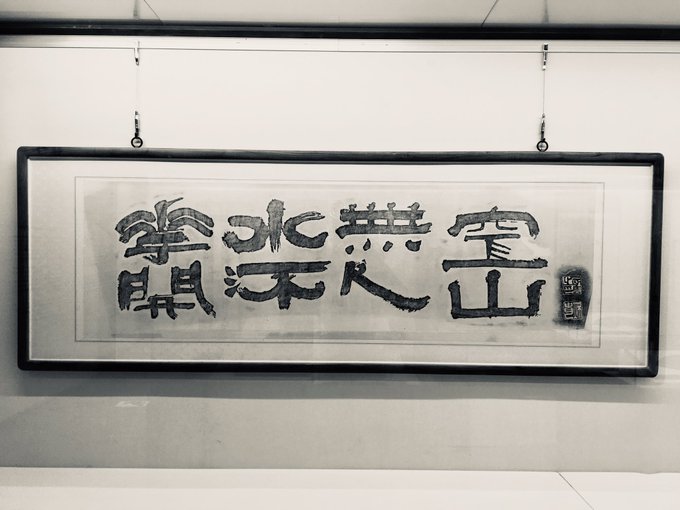 空山
無人
水流
華開